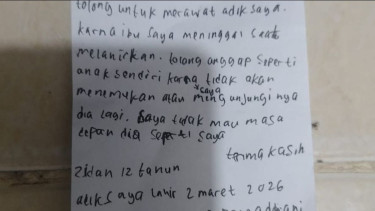 tolong untuk merawat adik saya.
karna ibu saya meninggal saat
melahirkan. tolong anggap seperti
anak sendiri karna tidak akan
saya
menemukan atau mengunjungi nya
dia lagi. saya tidak mau masa
depan dia seperti saya
terima kasih
Zidan 12 tahun
adik saya lahir 2 maret 2026